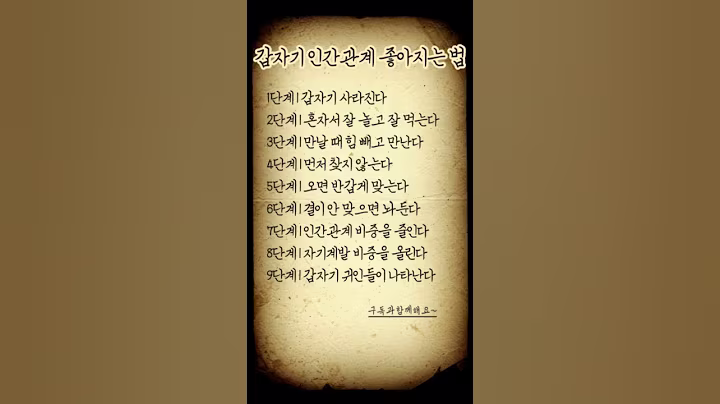 갑자기 인간관계 좋아지는 법
1단계 | 갑자기 사라진다
2단계 | 혼자서 잘 놀고 잘 먹는다
3단계 | 만날 때 힘 빼고 만난다
4단계 | 먼저 찾지 않는다
5단계 | 오면 반갑게 맞는다
6단계 | 결이 안 맞으면 놔 둔다
7단계 | 인간관계 비중을 줄인다
8단계 | 자기계발 비중을 올린다
9단계 | 갑자기 귀인들이 나타난다
구독과 함께해요~